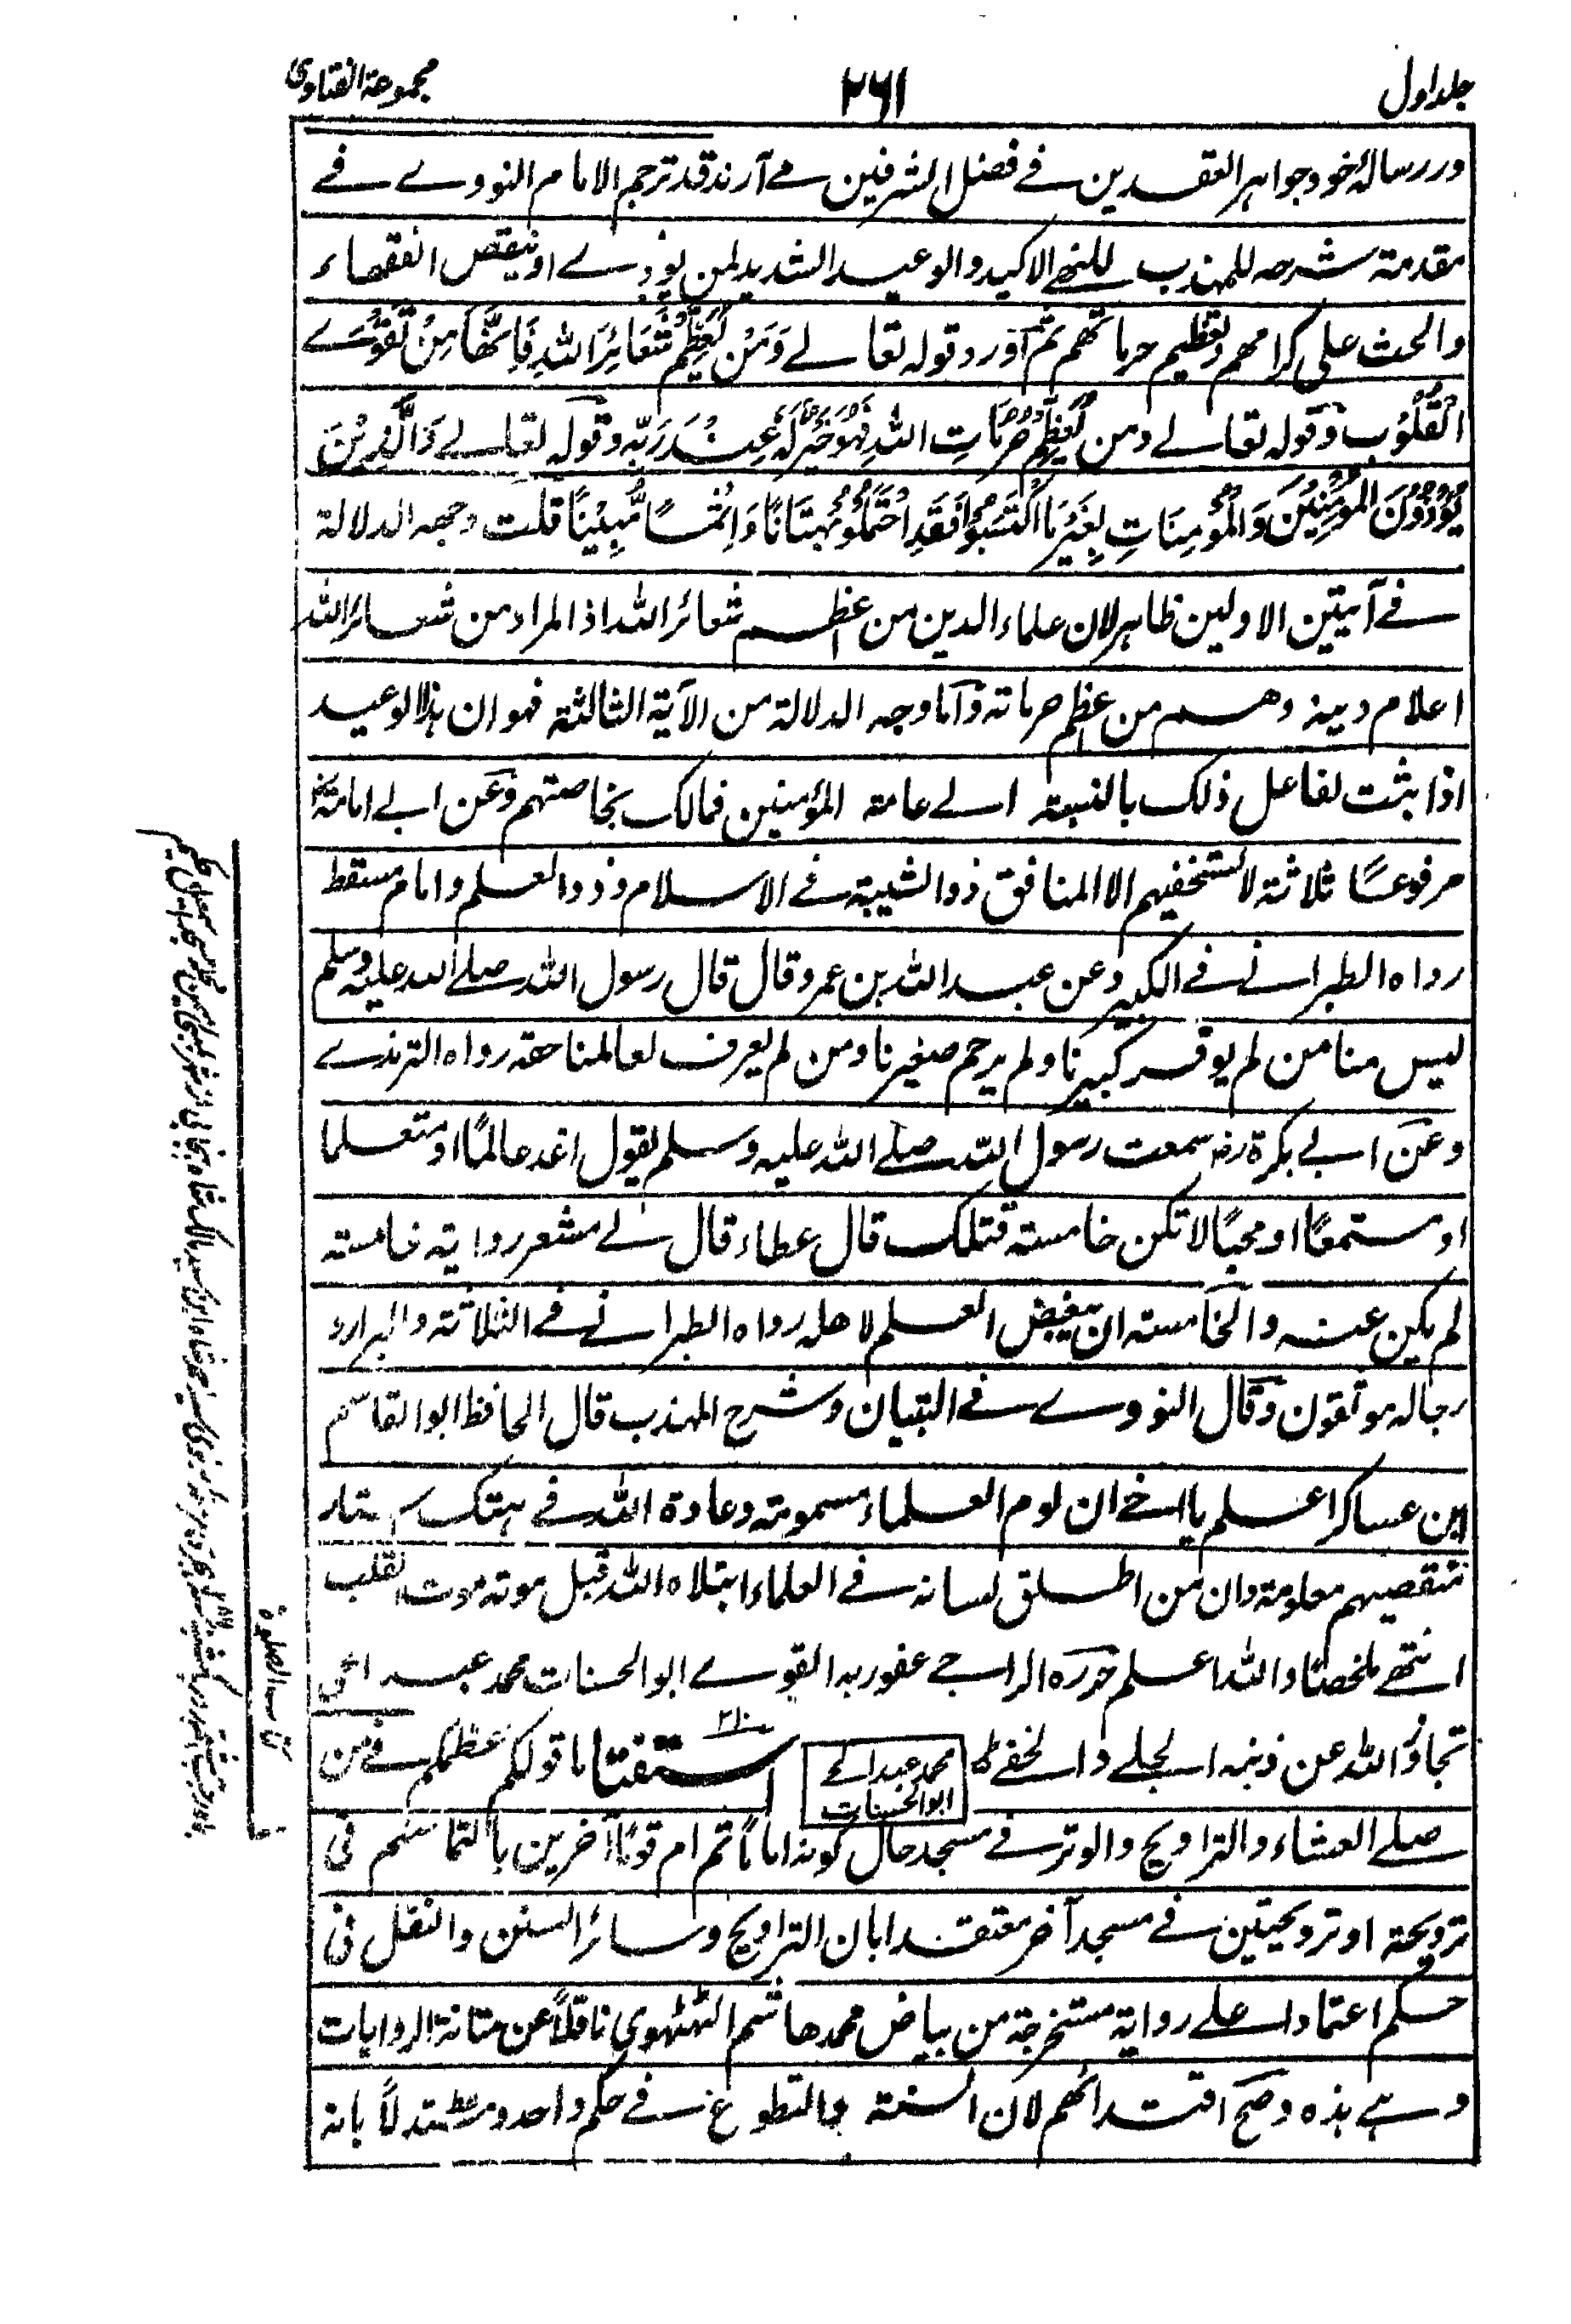 جلد اول
۲۶۱
مجموعة الفتاوی
ودر رساله خود جواهر العقدین فے فضل الشرفین مے آرند قد ترجم الامام النووے فے
مقدمة شرحه للمهذب للنهے الاکید والوعید الشدید لمن یوذے او ینقص الفقهاء
والحث علی اکرامهم وتعظیم حرماتهم ثم اورد قوله تعالے وَمَنْ یُعَظِّمْ شَعَائِرَ اللهِ فَاِنَّهَا مِنْ تَقْوَے
الْقُلُوْبِ وقوله تعالے ومن یُعَظِّمْ حُرُمَاتِ اللهِ فَهُوَ خَیْرٌ لَّهٗ عِنْدَ رَبِّهٖ وقوله تعالے وَالَّذِیْنَ
یُؤْذُوْنَ الْمُؤْمِنِیْنَ وَالْمُؤْمِنَاتِ بِغَیْرِ مَا اکْتَسَبُوْا فَقَدِ احْتَمَلُوْا بُهْتَانًا وَاِثْمًا مُّبِیْنًا قلت وجه الدلالة
فے آیتین الاولین ظاهر لان علماء الدین من اعظم شعائر الله اذ المراد من شعائر الله
اعلام دینه وهم من اعظم حرماته وآما وجه الدلالة من الآیة الثالثة فهو ان هذا الوعید
اذا ثبت لفاعل ذلک بالنسبة الے عامة المؤمنین فمالک بخاصتهم وعن ابے امامة
مرفوعًا ثلاثة لا یستخفیهم الا المنافق ذو الشیبة فے الاسلام وذو العلم وامام مقسط
رواه الطبرانے فے الکبیر وعن عبد الله بن عمرو قال قال رسول الله صلے الله علیه وسلم
لیس منا من لم یوقر کبیرنا ولم یرحم صغیرنا ومن لم یعرف لعالمنا حقه رواه الترمذے
وعن ابے بکرة رضـ سمعت رسول الله صلے الله علیه وسلم یقول اغد عالمًا او متعلما
او مستمعًا او محبًا لا تکن خامسة فتهلک قال عطاء قال لے مشعر روایة خامسة
لم یکن عنده والخامسة ان یبغض العلم لاهله رواه الطبرانے فے الثلاثة والبزار و
رجاله موثقون وقال النووے فے التبیان وشرح المهذب قال الحافظ ابو القاسم
ابن عساکر اعلم یا اخے ان لوم العلماء مسمومة وعادة الله فے هتک استار
منتقصیهم معلومة وان من اطلق لسانه فے العلماء ابتلاه الله قبل موته موت القلب
انتهے ملخصًا والله اعلم حرره الراجے عفو ربه القوے ابو الحسنات محمد عبد الحی
تجاوز الله عن ذنبه الجلے والخفے
محمد عبد الحے
ابو الحسنات
۲۱۰
استفتا ما قولکم عظمکم فے من
صلے العشاء والتراویح والوتر فے مسجد حال کونه اماما ثم ام قومًا آخرین بالتماسهم فی
ترویحة او ترویحتین فے مسجد آخر معتقدا بان التراویح وسائر السنن والنفل فی
حکم اعتمادا علے روایة مستخرجة من بیاض محمد هاشم التهتهوی ناقلًا عن متانة الروایات
وهے هذه وصح اقتدائهم لان السنة والتطوع فے حکم واحد ومستدلًا بانه
کتاب الصلوة